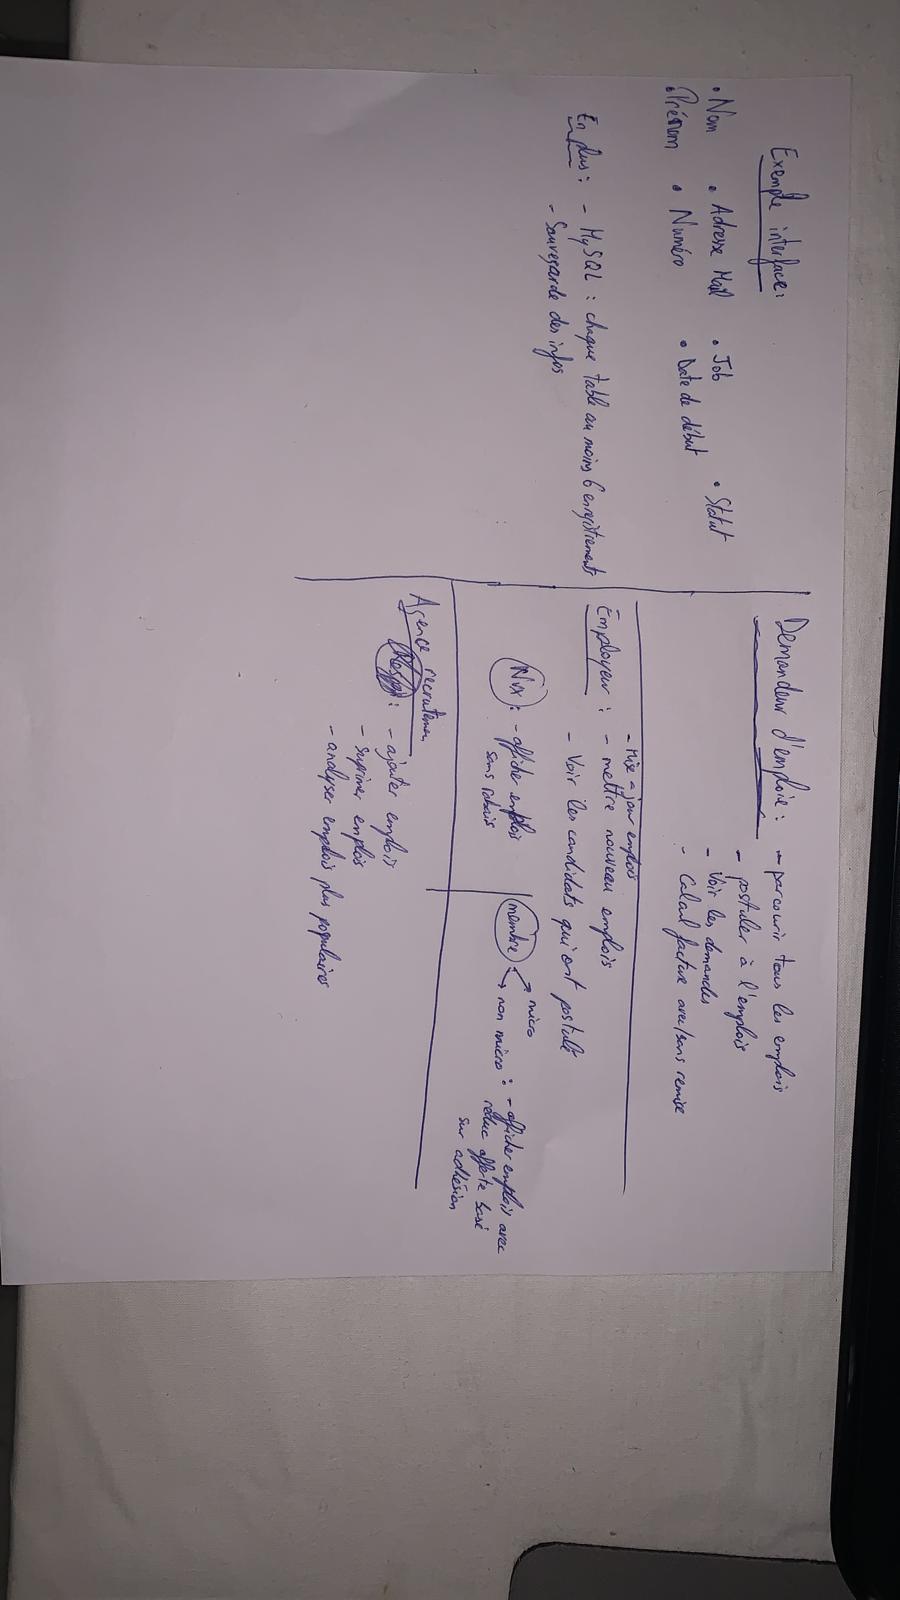 Exemple interface:
• Nom • Adresse Mail • Job • Statut
• Prénom • Numéro • Date de début
En plus: - MySQL : chaque table au moins 6 enregistrements
- Sauvegarde des infos
Demandeur d'emploie: - parcourir tous les emplois
- postuler à l'emplois
- Voir les demandes
- Calcul facture avec/sans remise
- Mise a jour emplois
Employeur : - mettre nouveau emplois
- Voir les candidats qui ont postulé
Nvx : - afficher emplois
sans rabais
membre → micro
→ non micro : - afficher emplois avec
réduc offerte basé
sur adhésion
Agence recrutemen
: - ajouter emplois
- suprimer emplois
- analyser emplois plus populaires